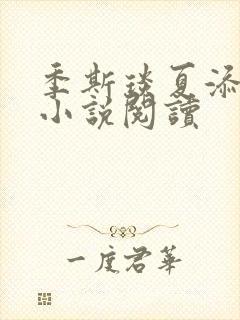 季斯琰夏添
小說閱讀
一度君華